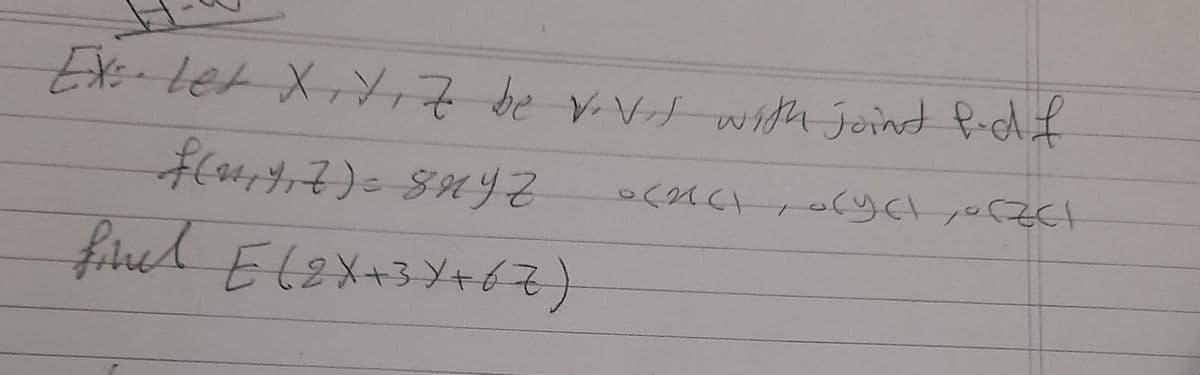 H.W
Ex:- Let X, Y, Z be r.v.s with joint p.d.f
f(x,y,z) = 8xyz 0<x<1, 0<y<1, 0<z<1
find E(2X+3Y+6Z)